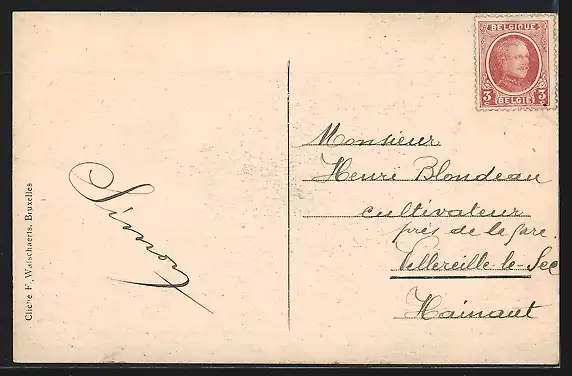 BELGIQUE
3 3
BELGIË
Monsieur
Henri Blondeau
cultivateur
près de la gare
Vellereille-le-Sec
Hainaut
Simon
Cliché F. Walschaerts, Bruxelles